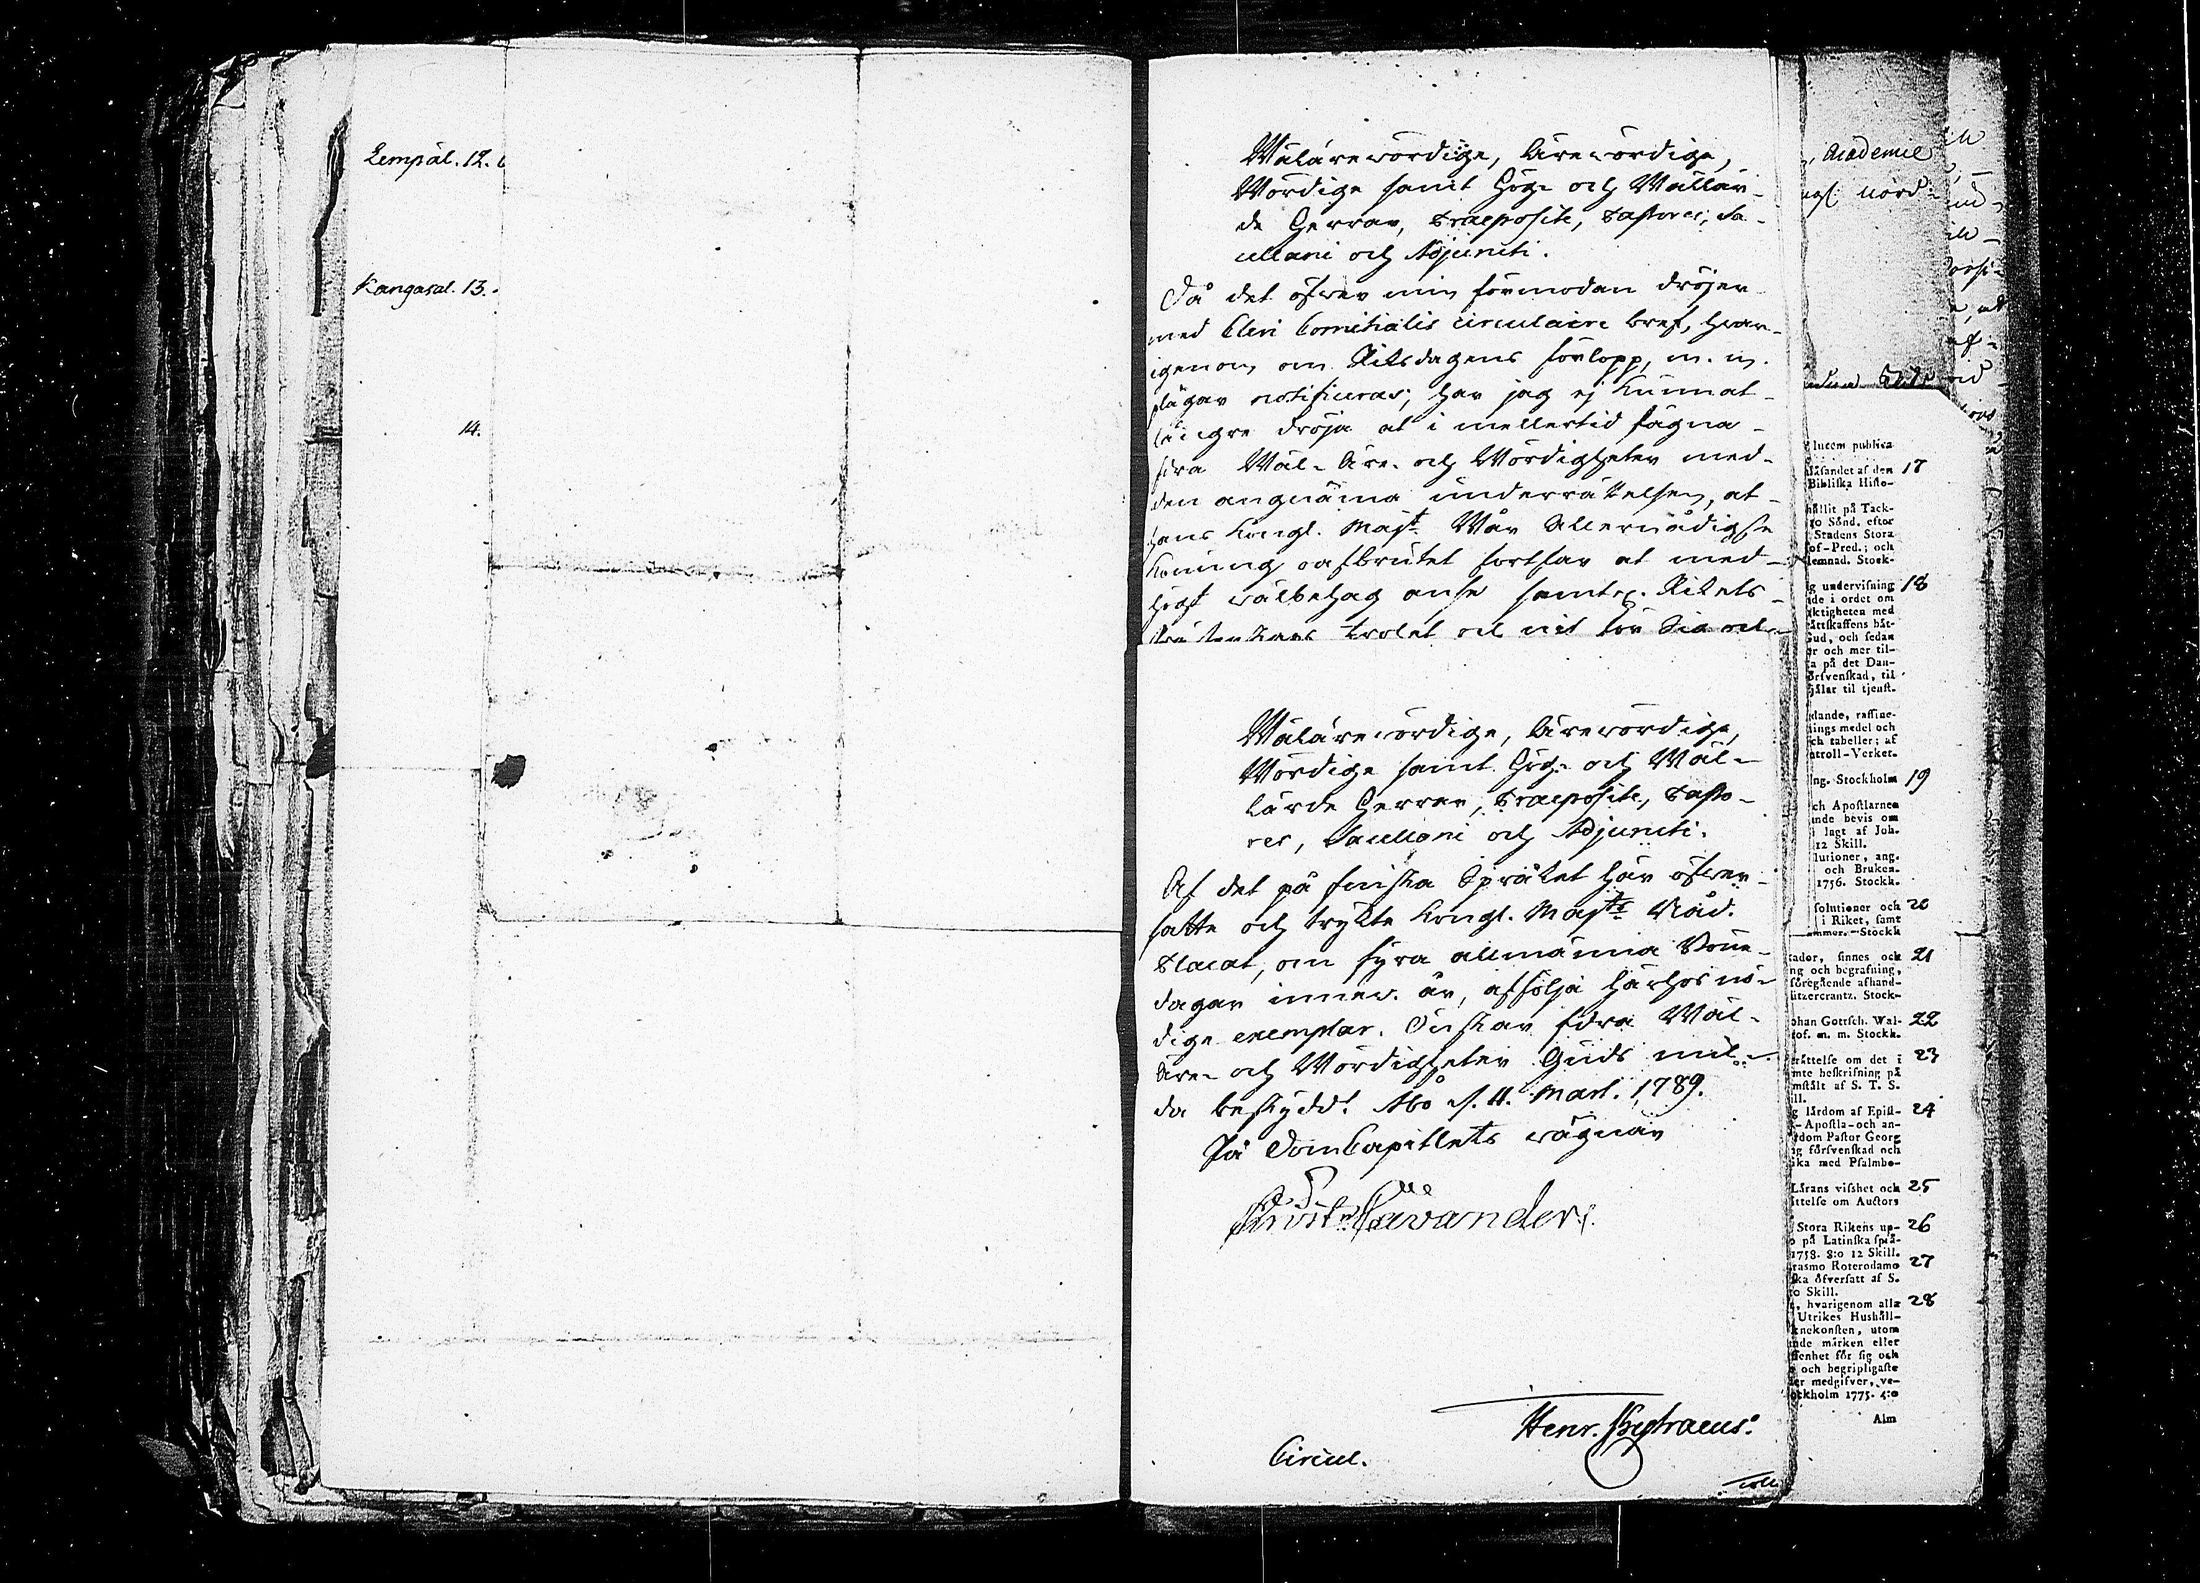 Lempäl. 12.
Kangasal. 13.
14.
Wälärewördige, Ärewördige,
Wördige samt Hög- och Wällär-
de Herrar, Praeposite, Pastores, Sa-
cellani och Adjuncti.
Då det öfwer min förmodan dröjer
med Cleri Comitialis circulaire bref, hwar-
igenom om Riksdagens förlopp, m. m.
plägar notificeras; har jag ej kunnat
längre dröja at i mellertid fägna
Edra Wäl- Äre- och Wördigheter med
den angnäma underrättelsen, at
Hans Kongl. Majt. Wår Allernådigste
Konung oafbrutet fortfar at med
högt wälbehag anse samtl. Rikets
trohet och nit för Sig och
Wälärewördige, Ärewördige,
Wördige samt Hög- och Wäl-
lärde Herrar, Praeposite, Pasto-
res, Sacellani och Adjuncti.
Af det på finska Språket här öfwer-
satte och trykte Kongl. Majts. Nåd.
Placat, om fyra allmänna Böne-
dagar innew. år, affölja härhos nö-
dige exemplar. Önskar Edra Wäl-
Äre- och Wördigheter Guds mil-
da beskydd! Åbo d. 11. Mart. 1789.
På DomCapitlets wägnar
Christ. Cavander.
Henr. Hästraeus.
Circul.
Academie
nord
lucem publica
låsandet af den 17
Bibliska Histo-
hållit på Tack-
10 Sånd. efter
Stadens Stora
of-Pred.; och
lemnad. Stock-
ig undervisning 18
de i ordet om
ktigheten med
rättskaffens båt-
Gud, och sedan
er och mer til-
a på det Dan-
örsvenskad, til
jålar til tjenst.
dande, raffine-
nings medel och
ch tabeller; af
ntroll-Verket.
ing. Stockholm 19
ch Apostlarnes
nde bevis om
lagt af Joh.
12 Skill.
lutioner, ang.
och Bruken.
1756. Stockh.
solutioner och 20
i Riket, samt
ammer. Stockh
tader, finnes ock 21
ng och begrafning,
föregående afhand-
litzercrantz. Stock-
ohan Gottsch. Wal- 22
rof. m. m. Stockh.
rättelse om det i 23
mte beskrifning på
mstålt af S. T. S.
ill.
g lårdom af Epist- 24
-Apostla-och an-
rdom Pastor Georg
ig försvenskad och
ika med Psalmbo-
Lårans visshet och 25
ättelse om Auctors
Stora Rikens up- 26
o på Latinska språ-
1758. 8:o 12 Skill.
rasmo Roterodamo 27
ska öfversatt af S.
ro Skill.
, hvarigenom alla 28
Utrikes Hushåll-
knekonsten, utom
nde märken eller
ffenhet för sig och
och begripligaste
er medgifver, ve-
ockholm 1775. 4:o
Alm